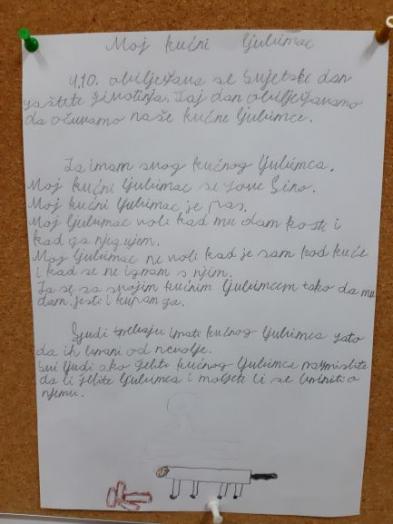 Moj kućni ljubimac
4.10. obilježava se Svjetski dan
zaštite životinja. Taj dan obilježavamo
da očuvamo naše kućne ljubimce.
Ja imam svog kućnog ljubimca.
Moj kućni ljubimac se zove Gino.
Moj kućni ljubimac je pas.
Moj ljubimac voli kad mu dam kosti i
kad ga njegujem.
Moj ljubimac ne voli kad je sam kod kuće
i kad se ne igram s njim.
Ja se sa svojim kućnim ljubimcem tako da mu
dam jesti i kupam ga.
Ljudi trebaju imate kućnog ljubimca zato
da ih brani od nevolje.
Svi ljudi ako želite kućnog ljubimca razmislite
da li želite ljubimca i možete li se brinuti o
njemu.